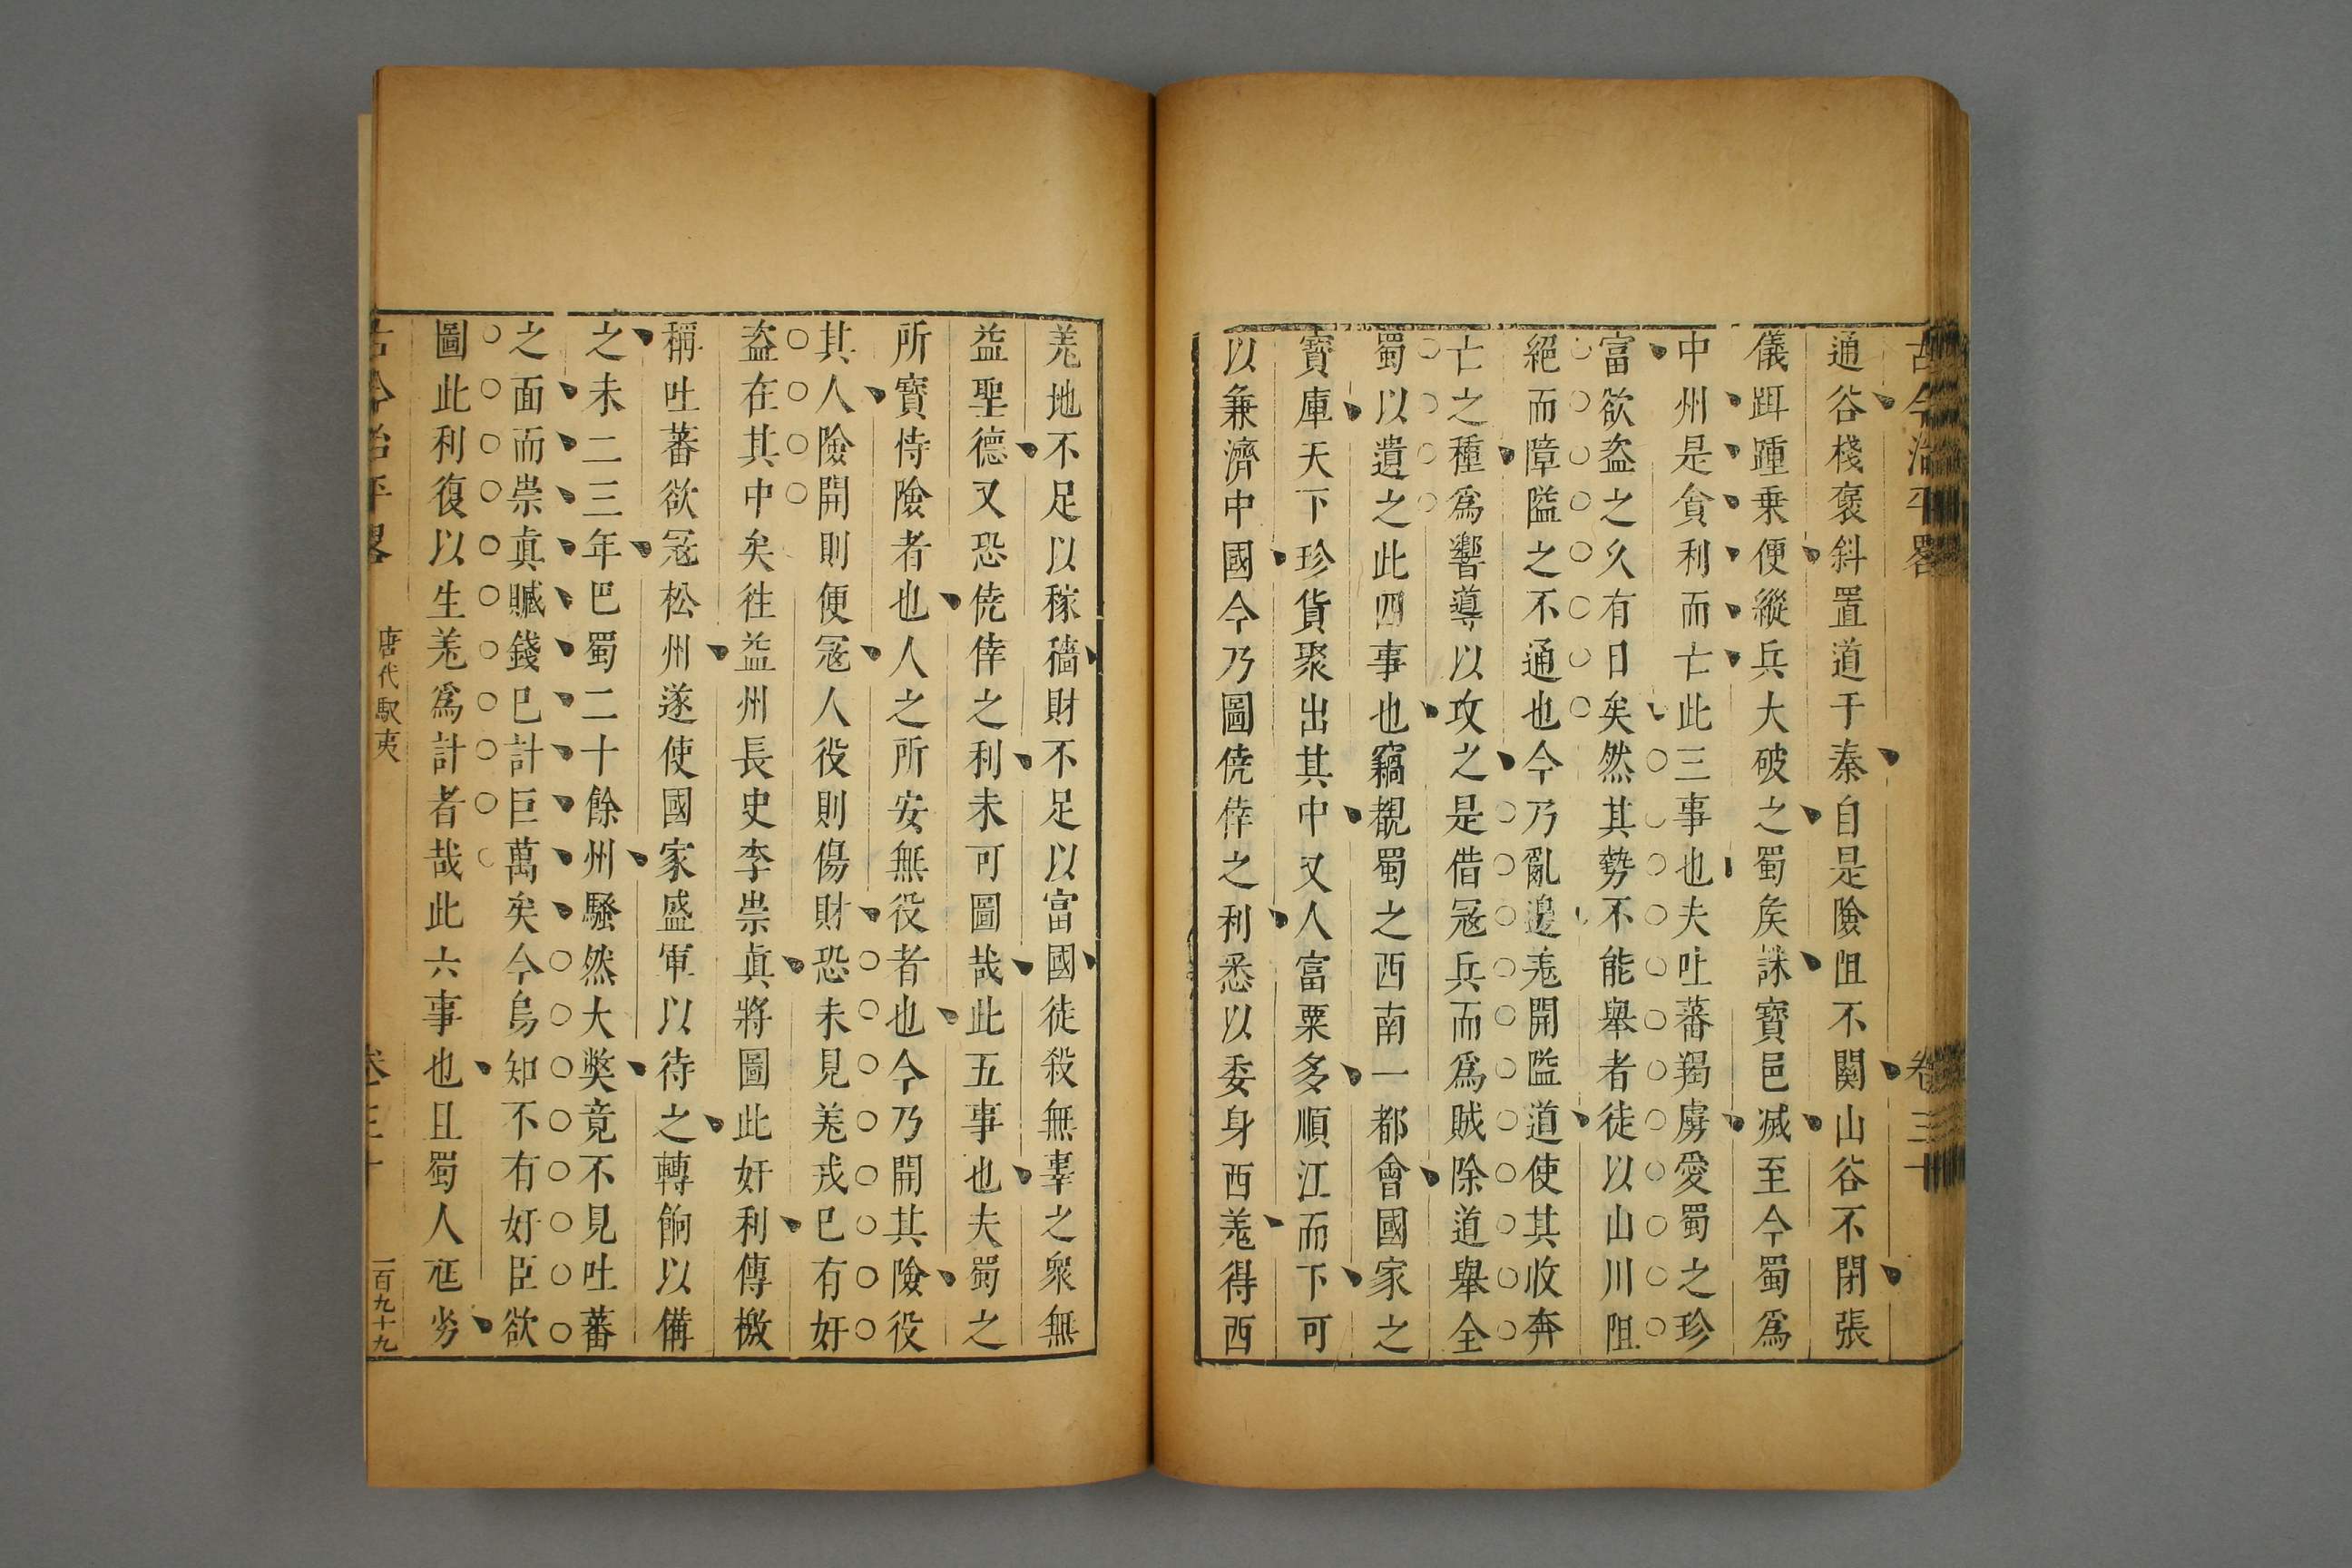 古今治平畧 卷三十
通谷棧褒斜置道于秦自是險阻不關山谷不閉張
儀躡踵乗便縱兵大破之蜀矦誅寶邑滅至今蜀爲
中州是貪利而亡此三事也夫吐蕃羯虜愛蜀之珍
富欲盗之久有日矣然其勢不能舉者徒以山川阻
絕而障隘之不通也今乃亂邊羌開隘道使其收奔
亡之種爲響導以攻之是借冦兵而爲賊除道舉全
蜀以遺之此四事也竊覩蜀之西南一都會國家之
寶庫天下珍貨聚出其中又人富粟多順江而下可
以兼濟中國今乃圖僥倖之利悉以委身西羌得西
羌地不足以稼穡財不足以富國徒殺無辜之衆無
益聖德又恐僥倖之利未可圖哉此五事也夫蜀之
所寶恃險者也人之所安無役者也今乃開其險役
其人險開則便冦人役則傷財恐未見羌戎已有奸
盗在其中矣徃益州長史李崇眞將圖此奸利傳檄
稱吐蕃欲冦松州遂使國家盛軍以待之轉餉以備
之未二三年巴蜀二十餘州騷然大獘竟不見吐蕃
之面而崇眞贓錢已計巨萬矣今烏知不有奸臣欲
圖此利復以生羌爲計者哉此六事也且蜀人尫劣
古今治平畧 唐代馭夷 卷三十 一百九十九